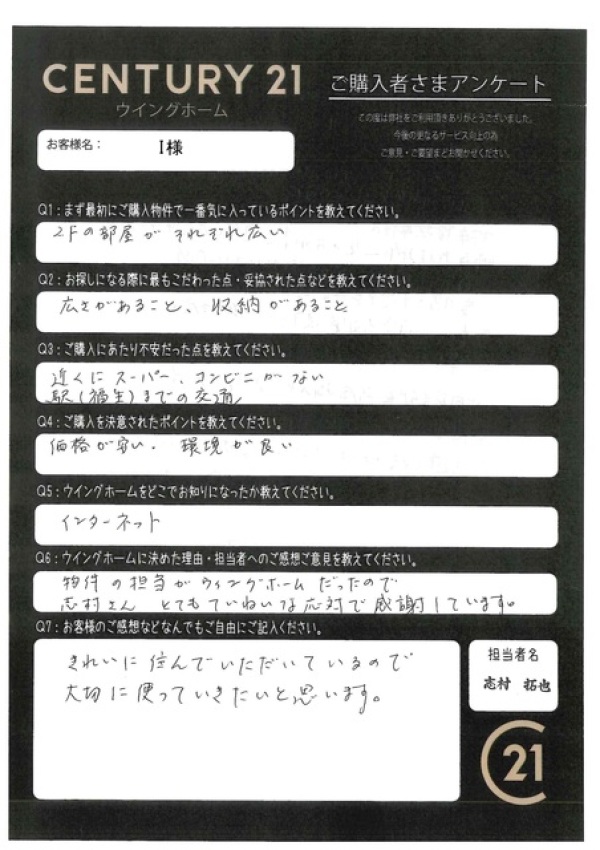 CENTURY 21
ウイングホーム
ご購入者さまアンケート
この度は弊社をご利用頂きありがとうございました。
今後の更なるサービス向上の為
ご意見・ご要望をお聞かせください。
お客様名： I様
Q1：まず最初にご購入物件で一番気に入っているポイントを教えてください。
2Fの部屋がそれぞれ広い
Q2：お探しになる際に最もこだわった点・妥協された点などを教えてください。
広さがあること、収納があること
Q3：ご購入にあたり不安だった点を教えてください。
近くにスーパー、コンビニがない
駅(福生)までの交通
Q4：ご購入を決意されたポイントを教えてください。
価格が安い、環境が良い
Q5：ウイングホームをどこでお知りになったか教えてください。
インターネット
Q6：ウイングホームに決めた理由・担当者へのご感想ご意見を教えてください。
物件の担当がウィングホームだったので
志村さん とてもていねいな応対で感謝しています。
Q7：お客様のご感想などなんでもご自由にご記入ください。
きれいに住んでいただいているので
大切に使っていきたいと思います。
担当者名
志村 拓也
21